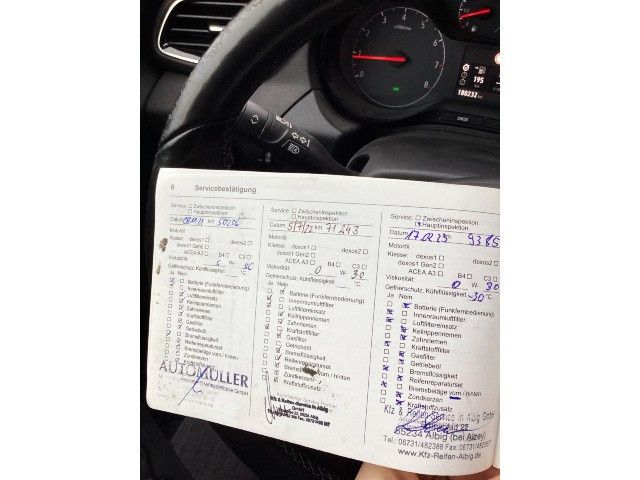 1 2 3 4 5 6 7 8
195
180232 km
CHECK
6 Servicebestätigung
Service: Zwischeninspektion
Hauptinspektion
Datum km 50226
Motoröl
Klasse: dexos1 dexos2
dexos1 Gen2
ACEA A3 B4 C3
Viskosität: 5 W- 30
Gefrierschutz, Kühlflüssigkeit: °C
Ja Nein
Batterie (Funkfernbedienung)
Innenraumluftfilter
Luftfiltereinsatz
Keilrippenriemen
Zahnriemen
Kraftstofffilter
Gasfilter
Getriebeöl
Bremsflüssigkeit
Reifenreparaturset
Bremsbeläge vorn / hinten
Zündkerzen
AUTOMÜLLER
Service: Zwischeninspektion
Hauptinspektion
Datum 5/7/22 km 71243
Motoröl
Klasse: dexos1 dexos2
dexos1 Gen2
ACEA A3 B4 C3
Viskosität: 0 W- 30
Gefrierschutz, Kühlflüssigkeit: °C
Ja Nein
Batterie (Funkfernbedienung)
Innenraumluftfilter
Luftfiltereinsatz
Keilrippenriemen
Zahnriemen
Kraftstofffilter
Gasfilter
Getriebeöl
Bremsflüssigkeit
Reifenreparaturset
Bremsbeläge vorn / hinten
Zündkerzen
Kraftstoffzusatz
Kfz & Reifen Service in Albig
GmbH
Service: Zwischeninspektion
Hauptinspektion
Datum 17.02.23 9385
Motoröl
Klasse: dexos1 dexos2
dexos1 Gen2
ACEA A3 B4 C3
Viskosität: 0 W- 30
Gefrierschutz, Kühlflüssigkeit: -30 °C
Ja Nein
Batterie (Funkfernbedienung)
Innenraumluftfilter
Luftfiltereinsatz
Keilrippenriemen
Zahnriemen
Kraftstofffilter
Gasfilter
Getriebeöl
Bremsflüssigkeit
Reifenreparaturset
Bremsbeläge vorn / hinten
Zündkerzen
Kraftstoffzusatz
Kfz & Reifen Service in Albig GmbH
55234 Albig (bei Alzey)
Tel.: 06731/482388 Fax: 06731/482387
www.Kfz-Reifen-Albig.de